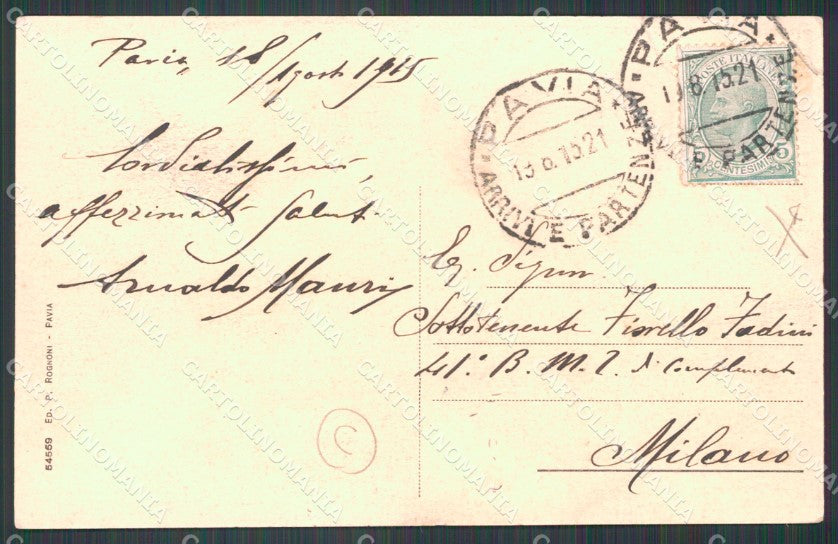 Pavia, 18/Agosto 1915
Cordialissimi,
affezionati saluti
Arnaldo Mauri
PAVIA
13.8.15.21
ARRIVI E PARTENZE
PAVIA
8.15.21
ARRIVI E PARTENZE
POSTE ITALIANE
CENTESIMI 5
Eg. Signor
Sottotenente Fiorello Fadini
41º B. M. T. di Complemento
Milano
C
54559 ED. P. ROGNONI - PAVIA
CARTOLINOMANIA